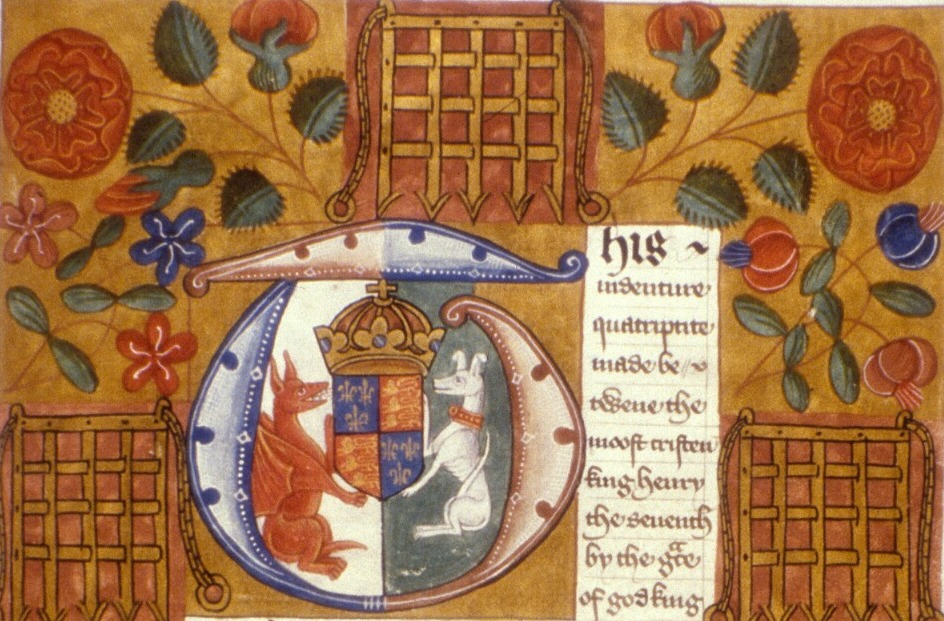 This ~
indenture
quatriptite
made be//
twene the
moost cristen
king henry
the seuenth
by the gᵃce
of god king